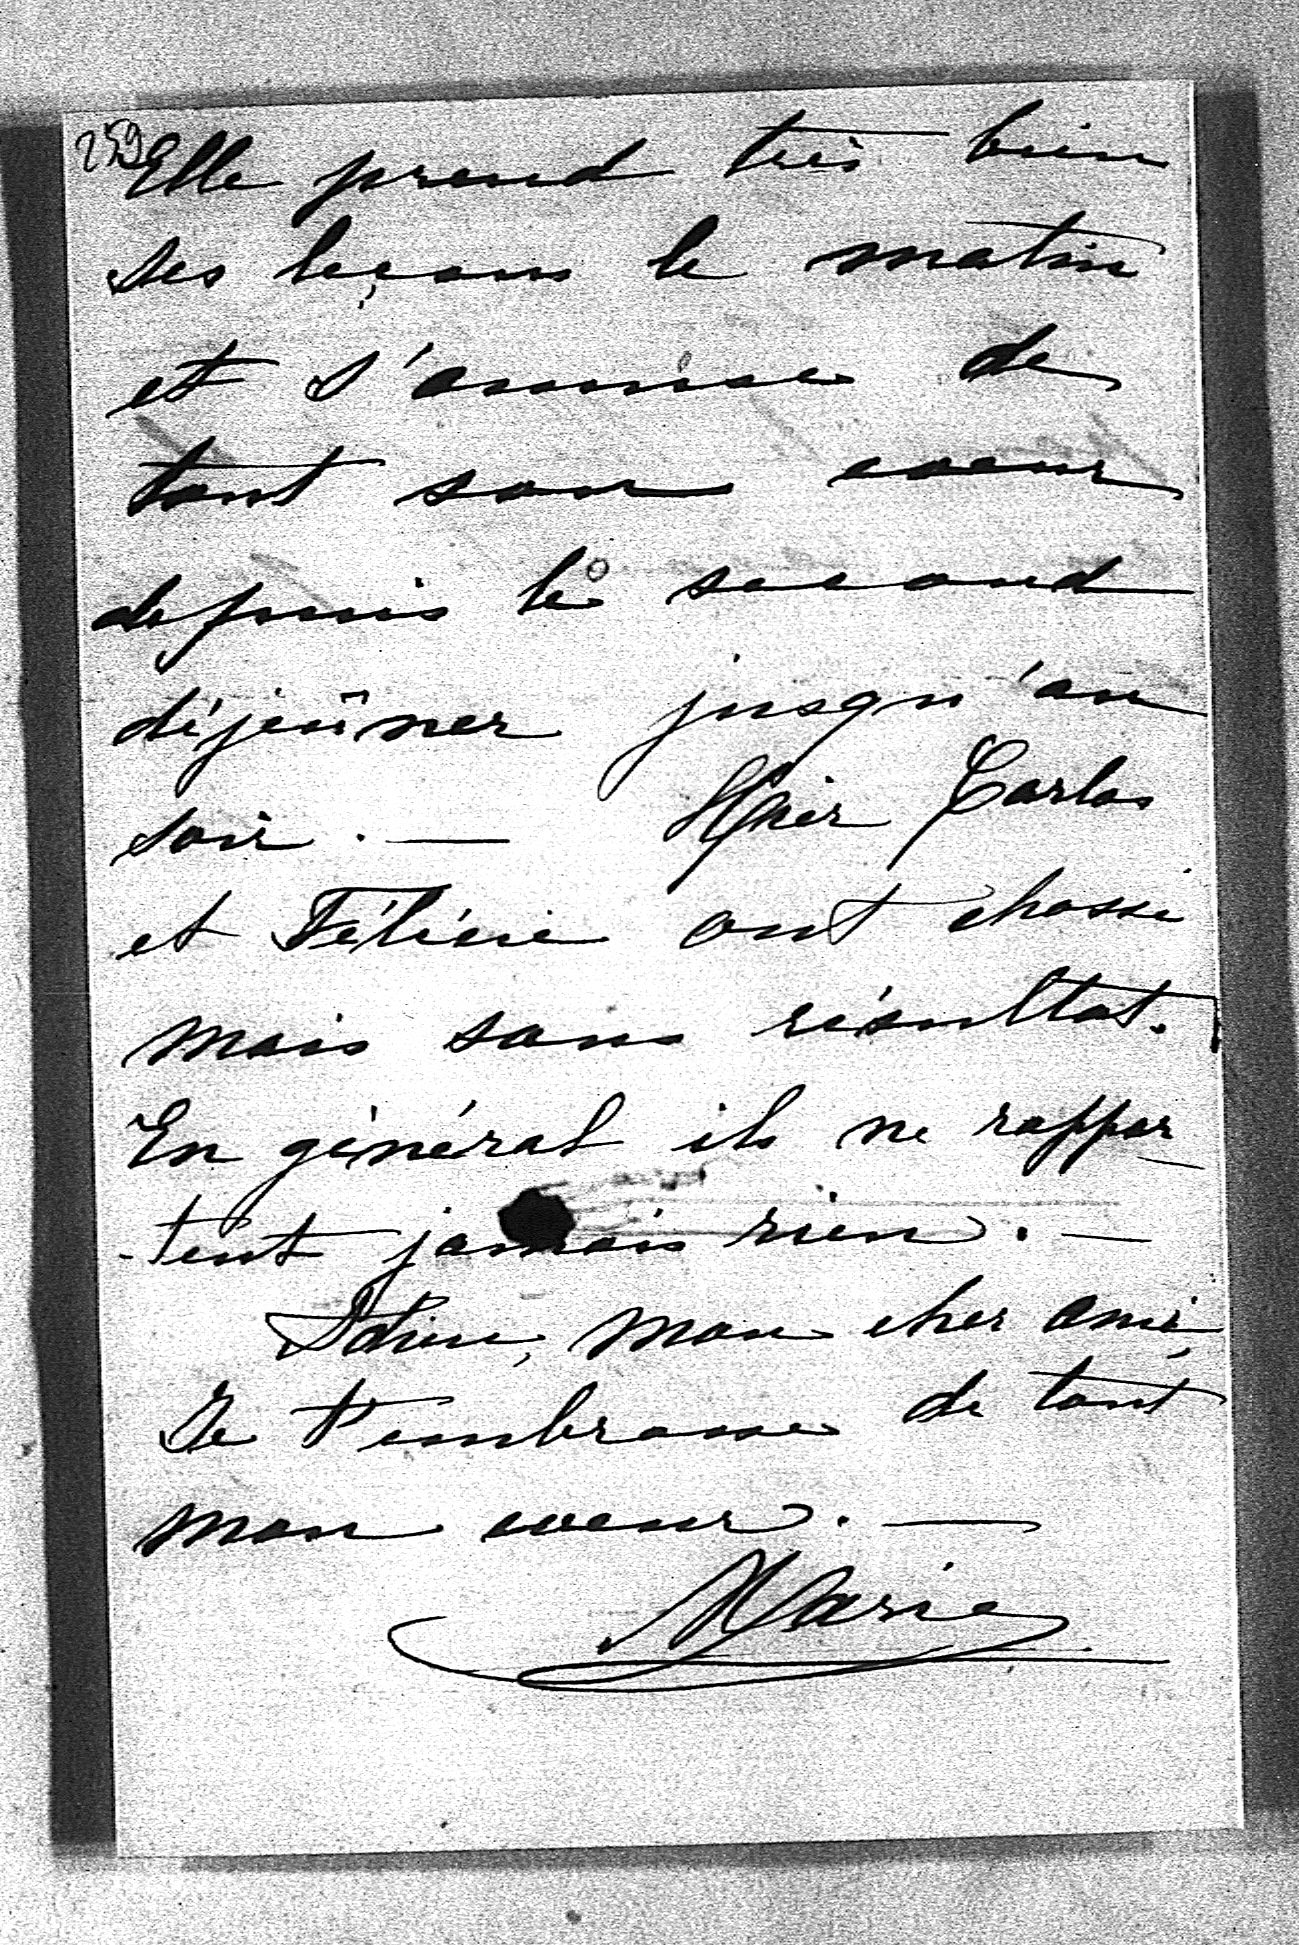 259
Elle prend très bien
ses leçons le matin
et s'amuse de
tout son coeur
depuis le second
déjeûner jusqu'au
soir. —
Hier Carlos
et Félicie ont chassé
mais sans résultat.
En général ils ne rappor
-tent jamais rien. —
Adieu, mon cher ami,
Je t'embrasse de tout
mon coeur. —
Marie